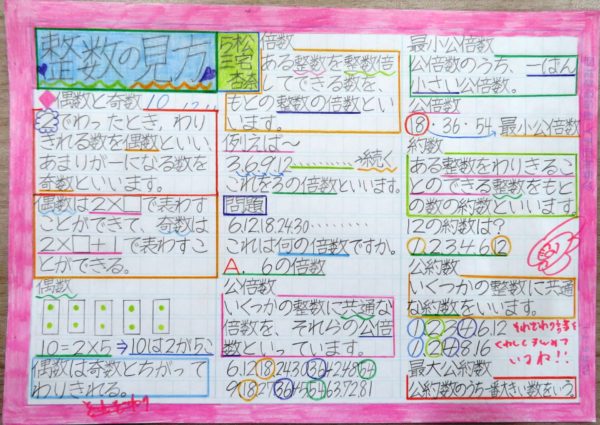 整数の見方
偶数と奇数
でわったとき、わり
きれる数を偶数といい、
あまりが一になる数を
奇数といいます。
偶数は2×□で表わす
ことができて、奇数は
2×□+1で表わすこ
とができる。
偶数
10=2×5→10は2が5、
偶数は奇数とちがって
わりきれる。
倍数
ある整数を整数倍
してできる数を、
もとの整数の倍数とい
います。
例えば〜
3.6.9.12 続く
これを3の倍数といいます。
問題
6.12.18.24.30………
これは何の倍数ですか。
A. 6の倍数
公倍数
いくつかの整数に共通な
倍数を、それらの公倍
数といっています。
6.12.18.24.30.36.42.48.54
9.18.27.36.45.54.63.72.81
最小公倍数
公倍数のうち、一ばん
小さい公倍数。
公倍数
18・36・54 最小公倍数
約数
ある整数をわりきるこ
とのできる整数をもと
の数の約数といいます。
12の約数は?
1.2.3.4.6.12
公約数
いくつかの整数に共通
な約数をいいます。
1.2.3.4.6.12
1.2.4.8.16
最大公約数
公約数のうち一番大きい数をいう。